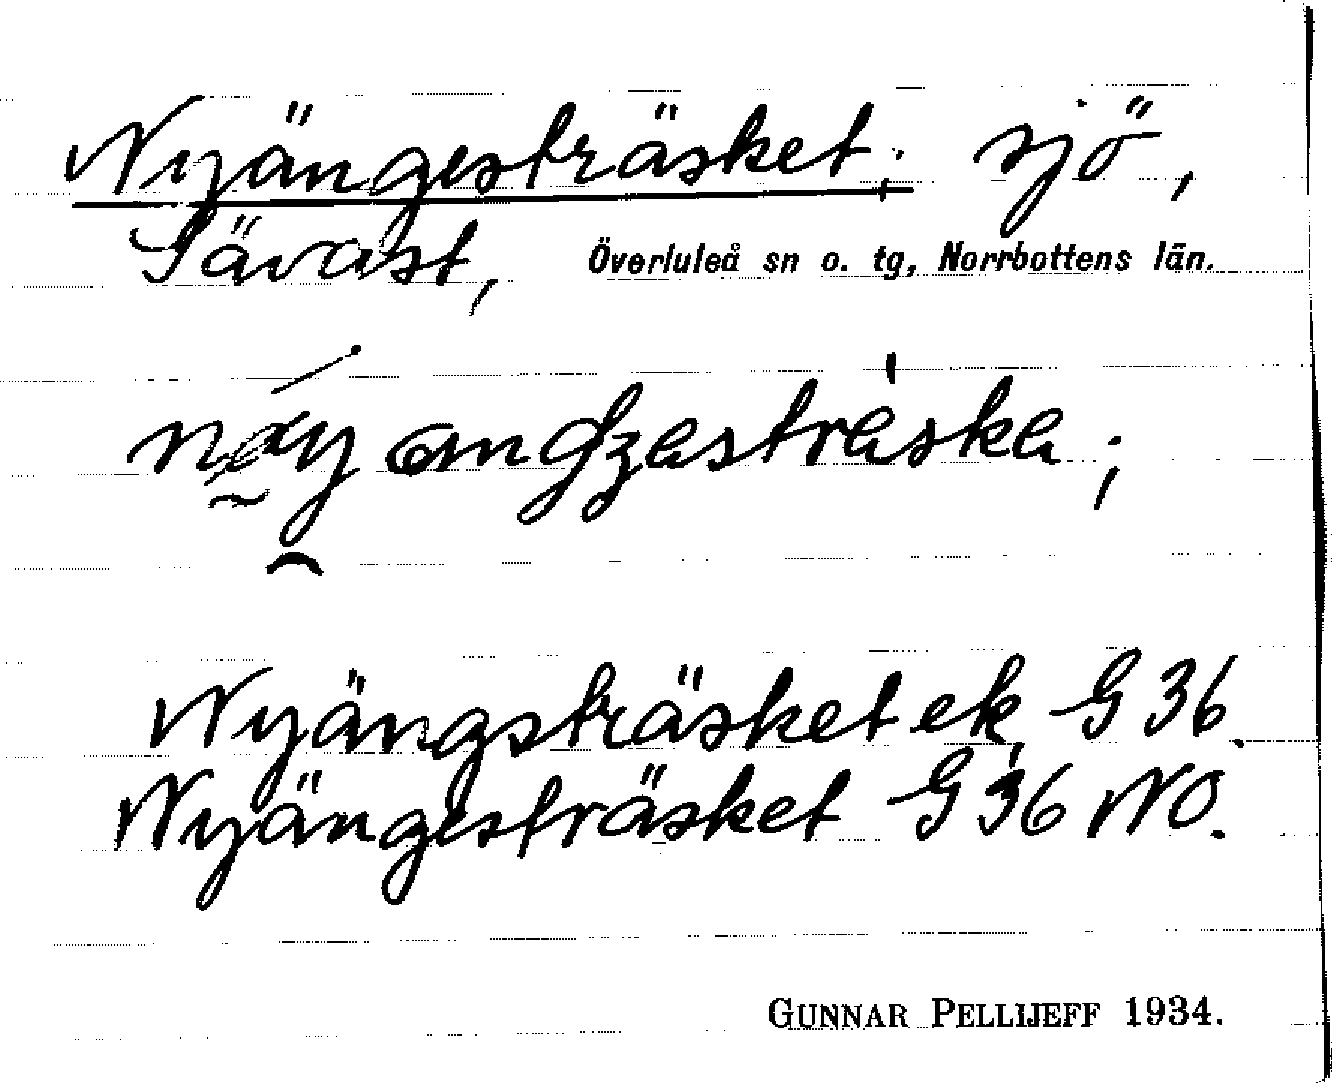 Nyängesträsket; sjö,
Sävast, Överluleå sn o. tg, Norrbottens län.
Nyängsträsket ek G 36.
Nyängesträsket G 36 NO.
GUNNAR PELLIJEFF 1934.